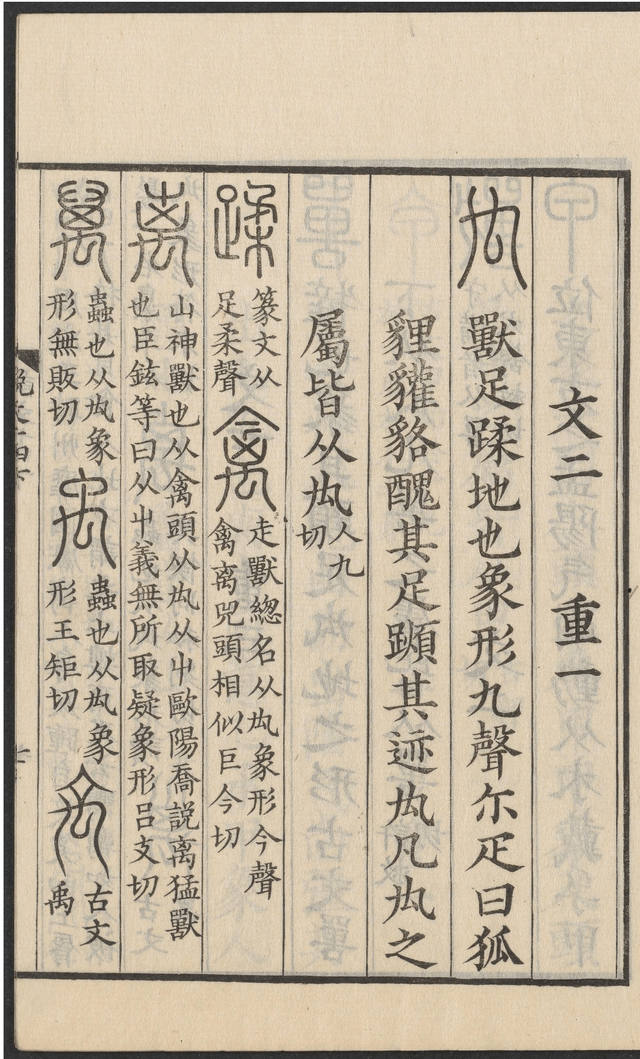 文二 重一
禸 獸足蹂地也象形九聲尒疋曰狐
貍貛貉醜其足蹞其迹禸凡禸之
屬皆从禸 人九切
蹂 篆文从足柔聲 禽 走獸緫名从禸象形今聲禽离兕頭相似巨今切
离 山神獸也从禽頭从禸从屮歐陽喬說离猛獸也臣鉉等曰从屮義無所取疑象形呂支切
萬 蟲也从禸象形無販切 禹 蟲也从禸象形王矩切 𥜼 古文禹
說文十四下 七